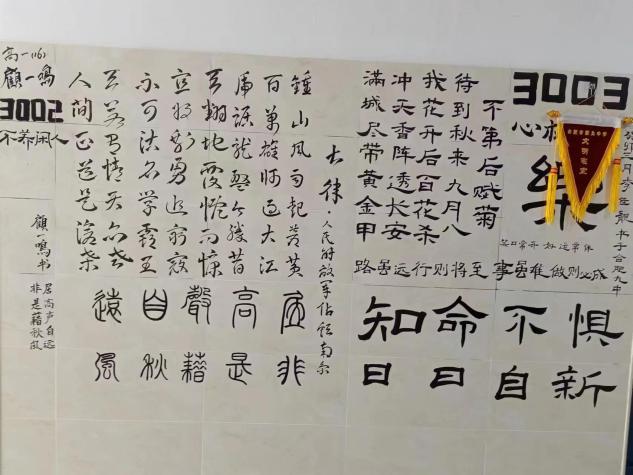 3003
文明寝室
樂
不第后赋菊
待到秋来九月八
我花开后百花杀
冲天香阵透长安
满城尽带黄金甲
路虽远行则将至
事虽难做则必成
知命不惧
日日自新
七律·人民解放军占领南京
鍾山风雨起苍黄
百万雄师过大江
虎踞龙盘今胜昔
天翻地覆慨而慷
宜将剩勇追穷寇
不可沽名学霸王
天若有情天亦老
人间正道是沧桑
居高聲自遠
非是藉秋風
高一(16)
顧一鳴
3002
不养闲人
顧一鳴书
居高声自远
非是藉秋风